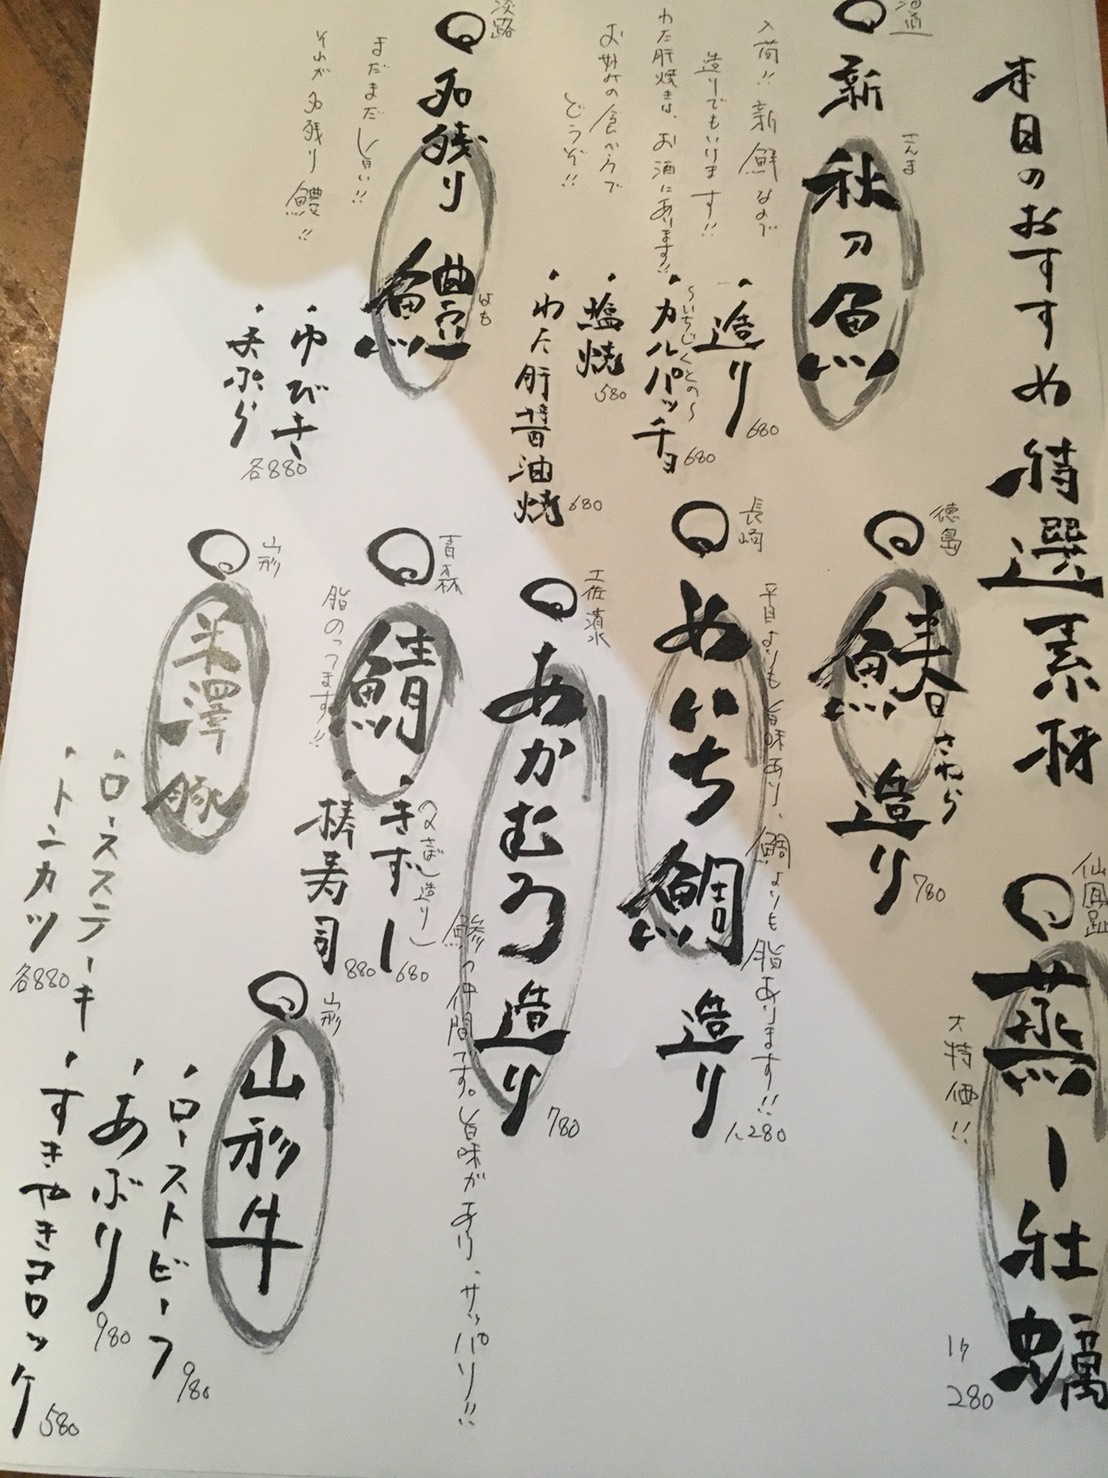 本日のおすすめ特選素材
道
新秋刀魚
さんま
入荷!!新鮮なので
造りでもいけます!!
わた肝焼きは、お酒にあります!!
お好みの食べ方で
どうぞ!!
・造り 680
・カルパッチョ 680
〜いちじくとの〜
・塩焼 580
・わた肝醤油焼 680
淡路
名残り鱧
はも
まだまだ旨い!!
それが名残り鱧!!
・ゆびき
・天ぷら
各880
仙鳳趾
蒸し牡蠣
大特価!!
1ケ
280
徳島
鰆造り 780
さわら
長崎
めいち鯛造り 1,280
平目よりも旨味あり、鯛よりも脂あります!!
土佐清水
あかむろ造り 780
鯵の仲間です。旨味があり、サッパリ!!
青森
鯖
脂のってます!!
・きずし 680
(〆さば造り)
・棒寿司 880
山形
米澤豚
・ロースステーキ
・トンカツ
各880
山形
山形牛
・ローストビーフ 980
・あぶり 980
・すきやきコロッケ 580